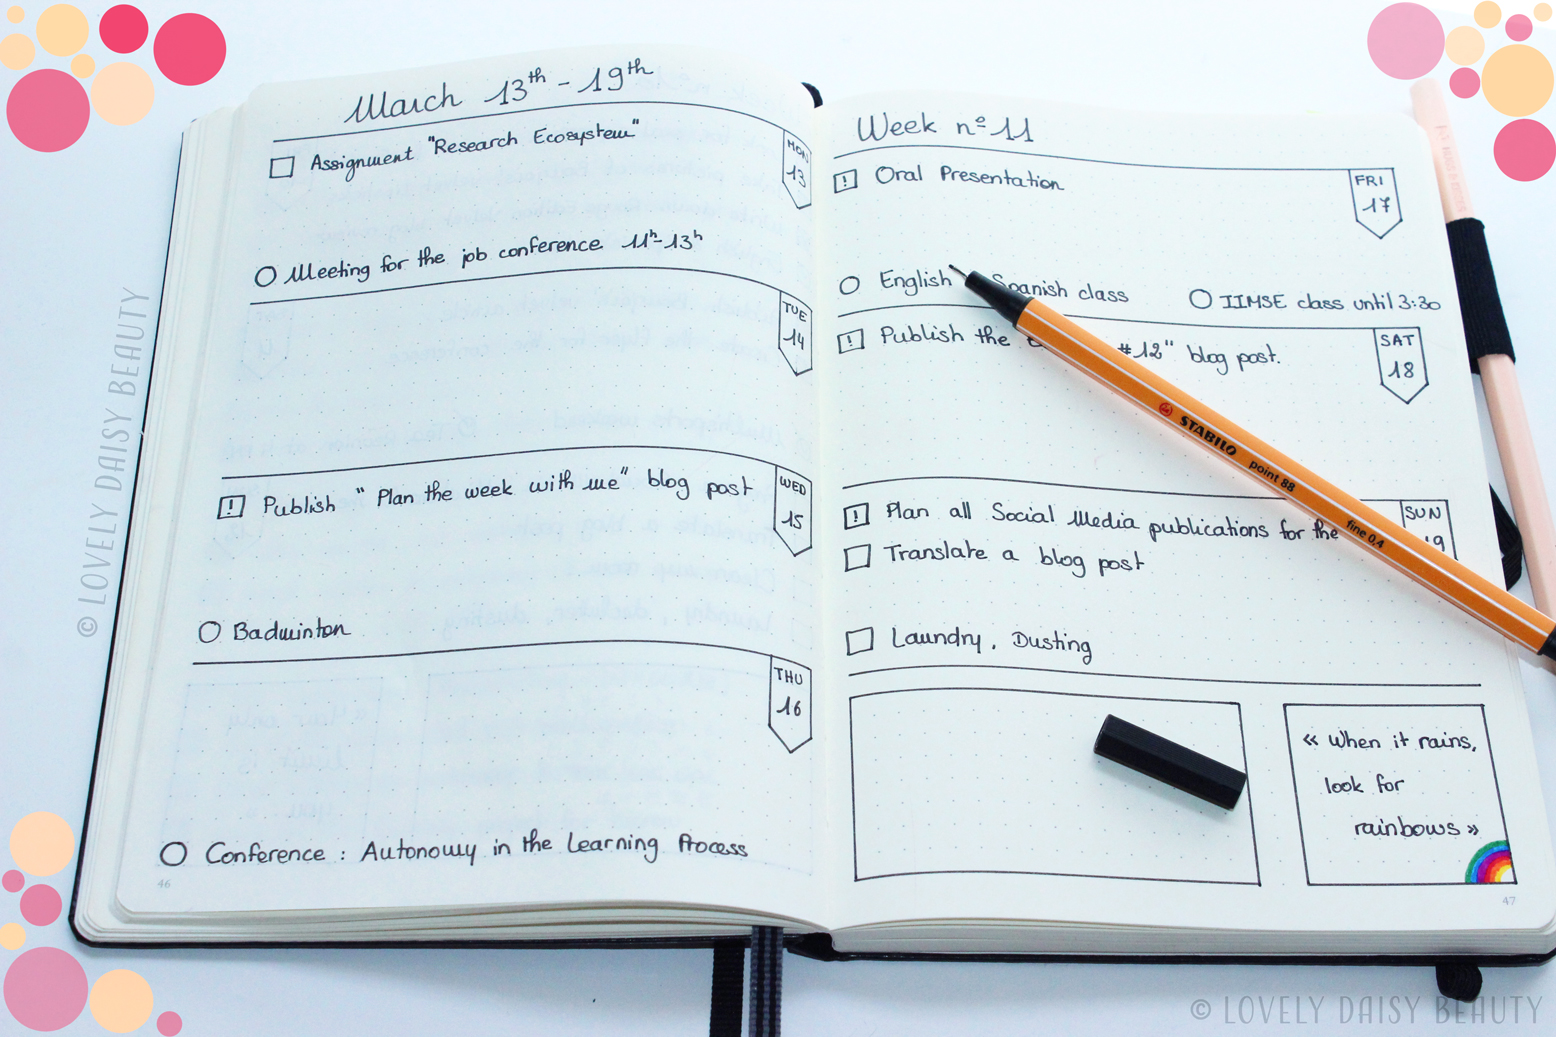 March 13th - 19th
MON
13
Assignment "Research Ecosystem"
Meeting for the job conference 11h-13h
TUE
14
WED
15
! Publish "Plan the week with me" blog post
Badminton
THU
16
Conference : Autonomy in the Learning Process
46
Week n° 11
FRI
17
! Oral Presentation
English Spanish class
IIMSE class until 3:30
SAT
18
! Publish the #12" blog post.
SUN
! Plan all Social Media publications for the
Translate a blog post
Laundry, Dusting
« When it rains,
look for
rainbows »
47
STABILO point 88 fine 0,4
© LOVELY DAISY BEAUTY
© LOVELY DAISY BEAUTY